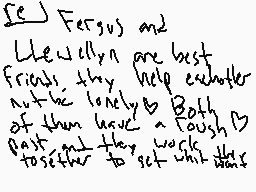 re
Fergus and
Llewellyn are best
friends, they help eachother
not be lonely ♡ Both
of them have a rough ♡
past, and they work
together to get what they want